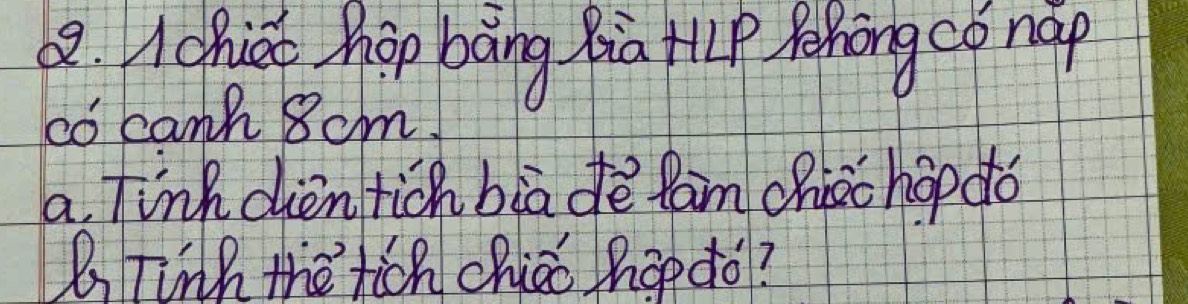 2. 1 chiếc hộp bằng bìa HLP không có nắp
có cạnh 8cm.
a. Tính diện tích bìa để làm chiếc hộp đó
b, Tính thể tích chiếc hộp đó?